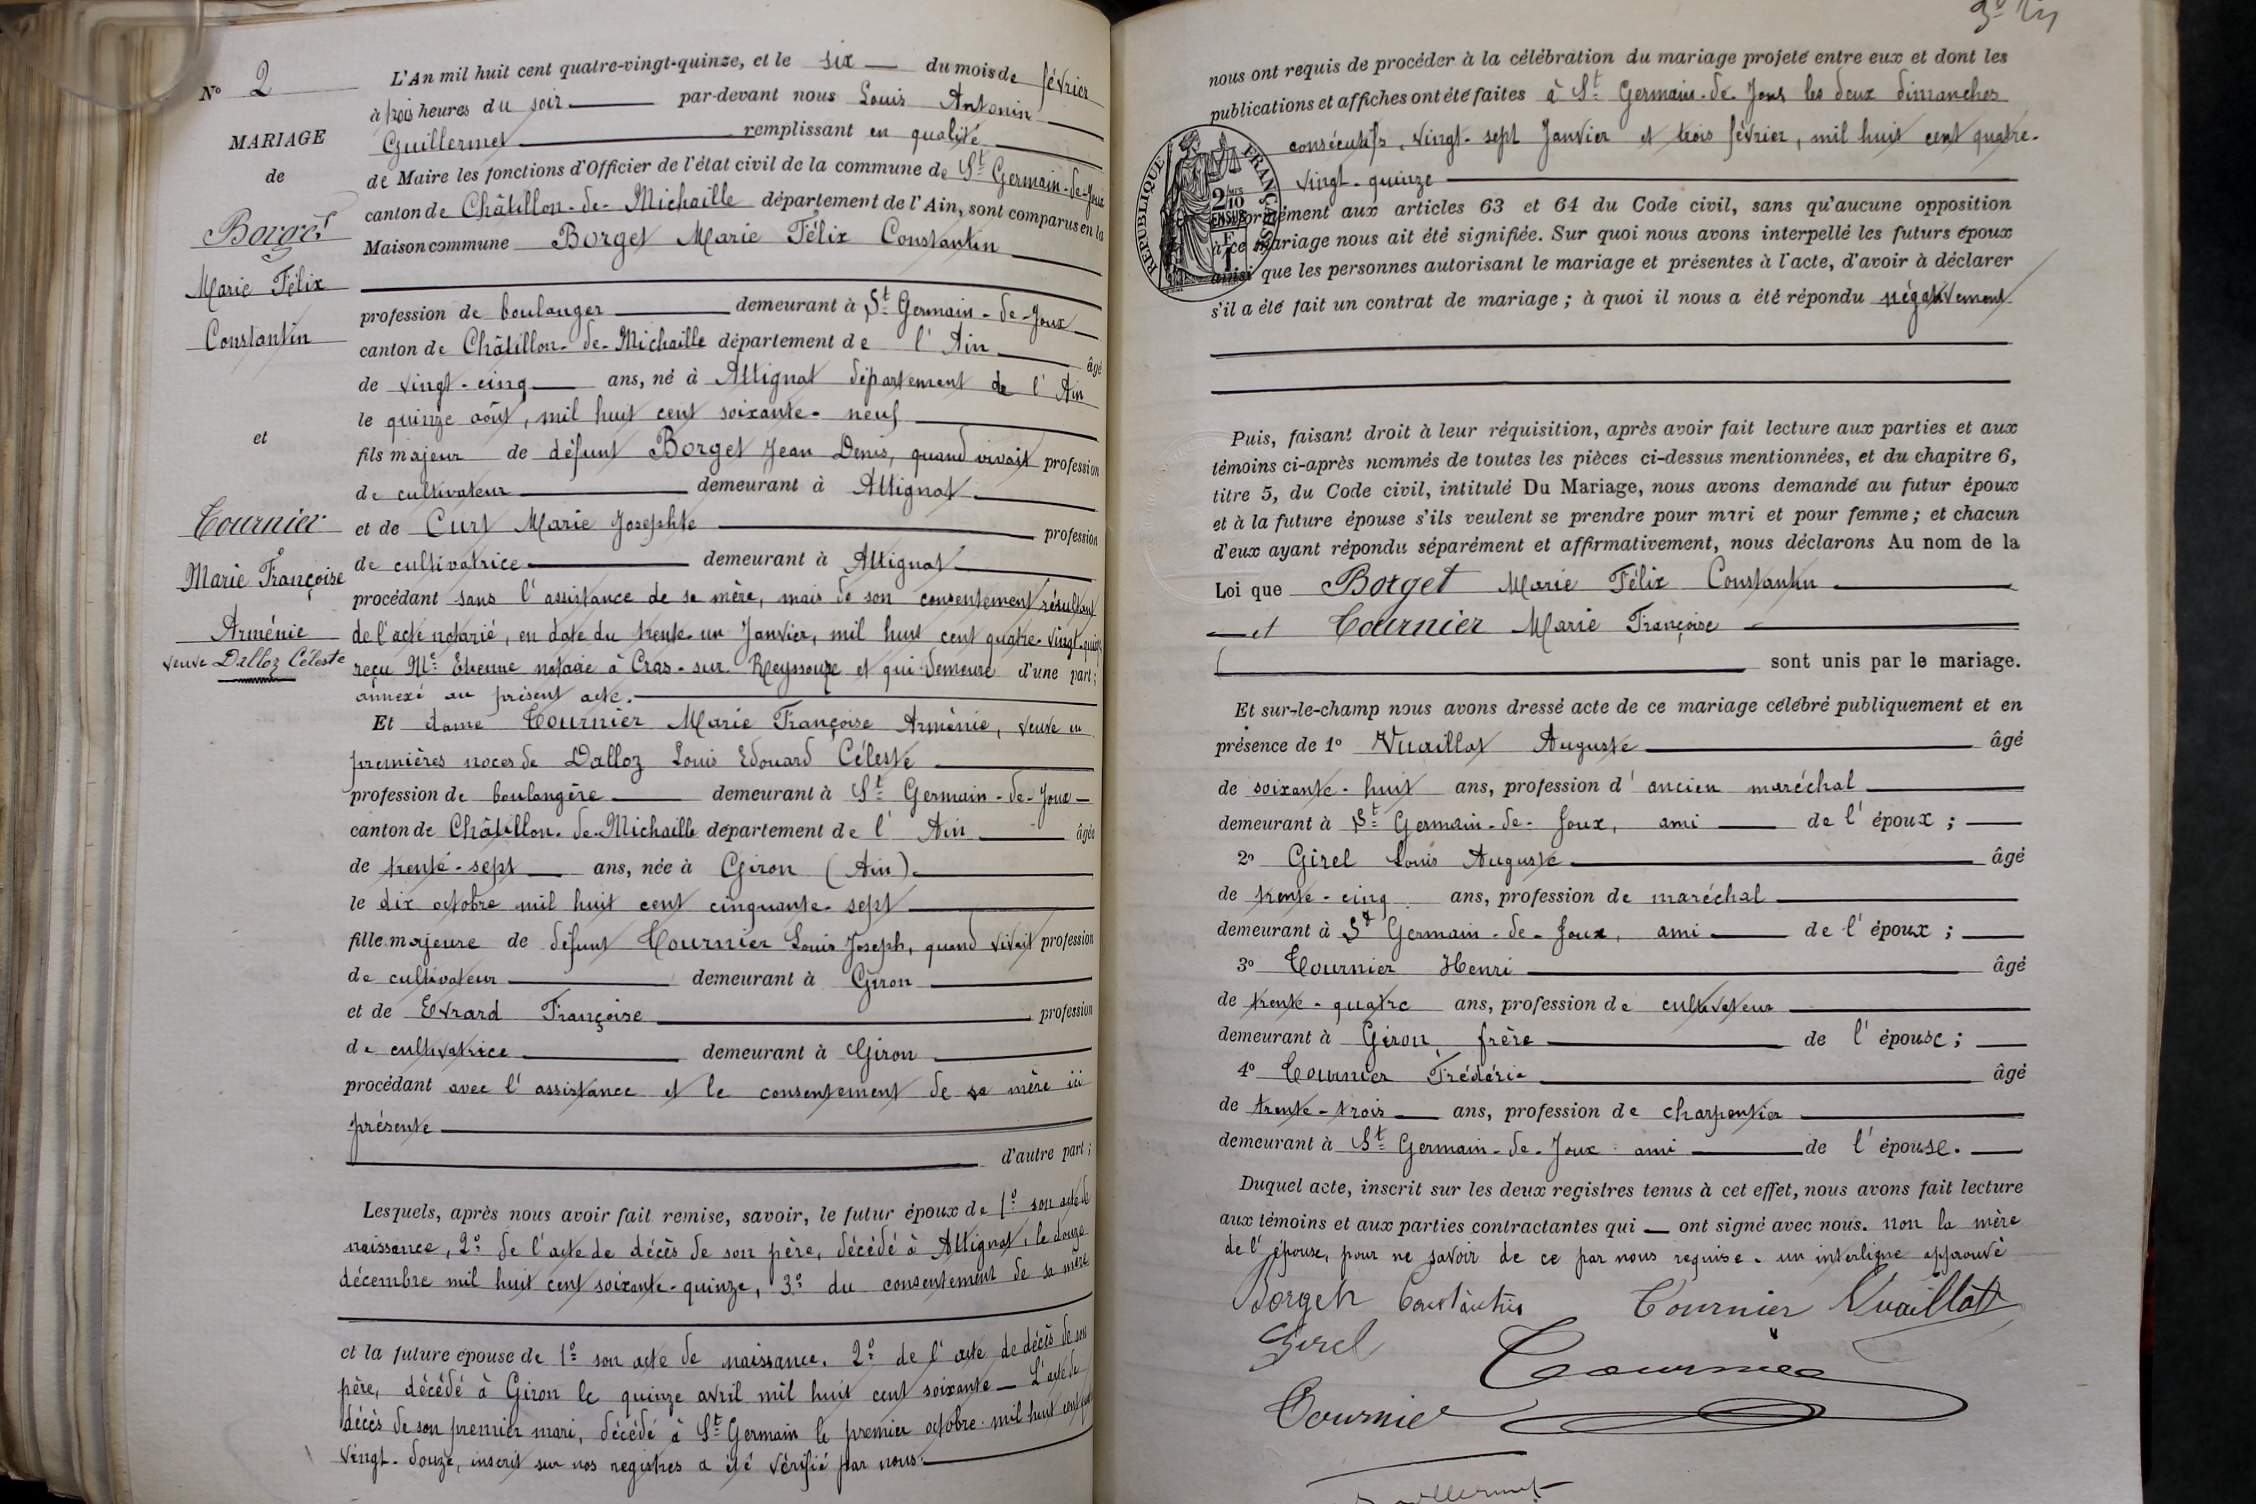 N° 2
MARIAGE
de
Borget
Marie Félix
Constantin
et
Tournier
Marie Françoise
Arménie
veuve Dalloz Céleste
L'An mil huit cent quatre-vingt-quinze, et le six du mois de février
à trois heures du soir par-devant nous Louis Antonin
Guillermet remplissant en qualité
de Maire les fonctions d'Officier de l'état civil de la commune de St Germain-de-Joux
canton de Châtillon-de-Michaille département de l'Ain, sont comparus en la
Maison commune Borget Marie Félix Constantin
profession de boulanger demeurant à St Germain-de-Joux
canton de Châtillon-de-Michaille département de l'Ain âgé
de vingt-cinq ans, né à Attignat département de l'Ain
le quinze août, mil huit cent soixante-neuf
fils majeur de défunt Borget Jean Denis, quand vivait profession
de cultivateur demeurant à Attignat
et de Curt Marie Josephte profession
de cultivatrice demeurant à Attignat
procédant sans l'assistance de sa mère, mais de son consentement résultant
de l'acte notarié, en date du trente-un Janvier, mil huit cent quatre-vingt-quinze
reçu Me Etienne notaire à Cras-sur-Reyssouze et qui demeure d'une part;
annexé au présent acte.
Et dame Tournier Marie Françoise Arménie, veuve en
premières noces de Dalloz Louis Edouard Céleste
profession de boulangère demeurant à St Germain-de-Joux
canton de Châtillon-de-Michaille département de l'Ain âgée
de trente-sept ans, née à Giron (Ain)
le dix octobre mil huit cent cinquante-sept
fille majeure de défunt Tournier Louis Joseph, quand vivait profession
de cultivateur demeurant à Giron
et de Evrard Françoise profession
de cultivatrice demeurant à Giron
procédant avec l'assistance et le consentement de sa mère ici
présente
d'autre part;
Lesquels, après nous avoir fait remise, savoir, le futur époux de 1° son acte de
naissance, 2° de l'acte de décès de son père, décédé à Attignat, le douze
décembre mil huit cent soixante-quinze, 3° du consentement de sa mère
et la future épouse de 1° son acte de naissance, 2° de l'acte de décès de son
père, décédé à Giron le quinze avril mil huit cent soixante — L'acte de
décès de son premier mari, décédé à St Germain le premier octobre mil huit cent quatre
vingt-douze, inscrit sur nos registres a été vérifié par nous.
nous ont requis de procéder à la célébration du mariage projeté entre eux et dont les
publications et affiches ont été faites à St Germain-de-Joux les deux dimanches
consécutifs, vingt-sept Janvier et trois février, mil huit cent quatre-
vingt-quinze
REPUBLIQUE FRANÇAISE
2/10 EN SUS
conformément aux articles 63 et 64 du Code civil, sans qu'aucune opposition
à ce mariage nous ait été signifiée. Sur quoi nous avons interpellé les futurs époux
ainsi que les personnes autorisant le mariage et présentes à l'acte, d'avoir à déclarer
s'il a été fait un contrat de mariage; à quoi il nous a été répondu négativement
Puis, faisant droit à leur réquisition, après avoir fait lecture aux parties et aux
témoins ci-après nommés de toutes les pièces ci-dessus mentionnées, et du chapitre 6,
titre 5, du Code civil, intitulé Du Mariage, nous avons demandé au futur époux
et à la future épouse s'ils veulent se prendre pour mari et pour femme; et chacun
d'eux ayant répondu séparément et affirmativement, nous déclarons Au nom de la
Loi que Borget Marie Félix Constantin
et Tournier Marie Françoise
sont unis par le mariage.
Et sur-le-champ nous avons dressé acte de ce mariage célébré publiquement et en
présence de 1° Vuaillat Auguste âgé
de soixante-huit ans, profession d'ancien maréchal
demeurant à St Germain-de-Joux, ami de l'époux;
2° Girel Louis Auguste âgé
de trente-cinq ans, profession de maréchal
demeurant à St Germain-de-Joux, ami de l'époux;
3° Tournier Henri âgé
de trente-quatre ans, profession de cultivateur
demeurant à Giron, frère de l'épouse;
4° Tournier Frédéric âgé
de trente-trois ans, profession de charpentier
demeurant à St Germain-de-Joux ami de l'épouse.
Duquel acte, inscrit sur les deux registres tenus à cet effet, nous avons fait lecture
aux témoins et aux parties contractantes qui — ont signé avec nous. non la mère
de l'épouse, pour ne savoir de ce par nous requise. un interligne approuvé
Borget Constantin Tournier Vuaillat
Girel Tournier
Tournier
Guillermet